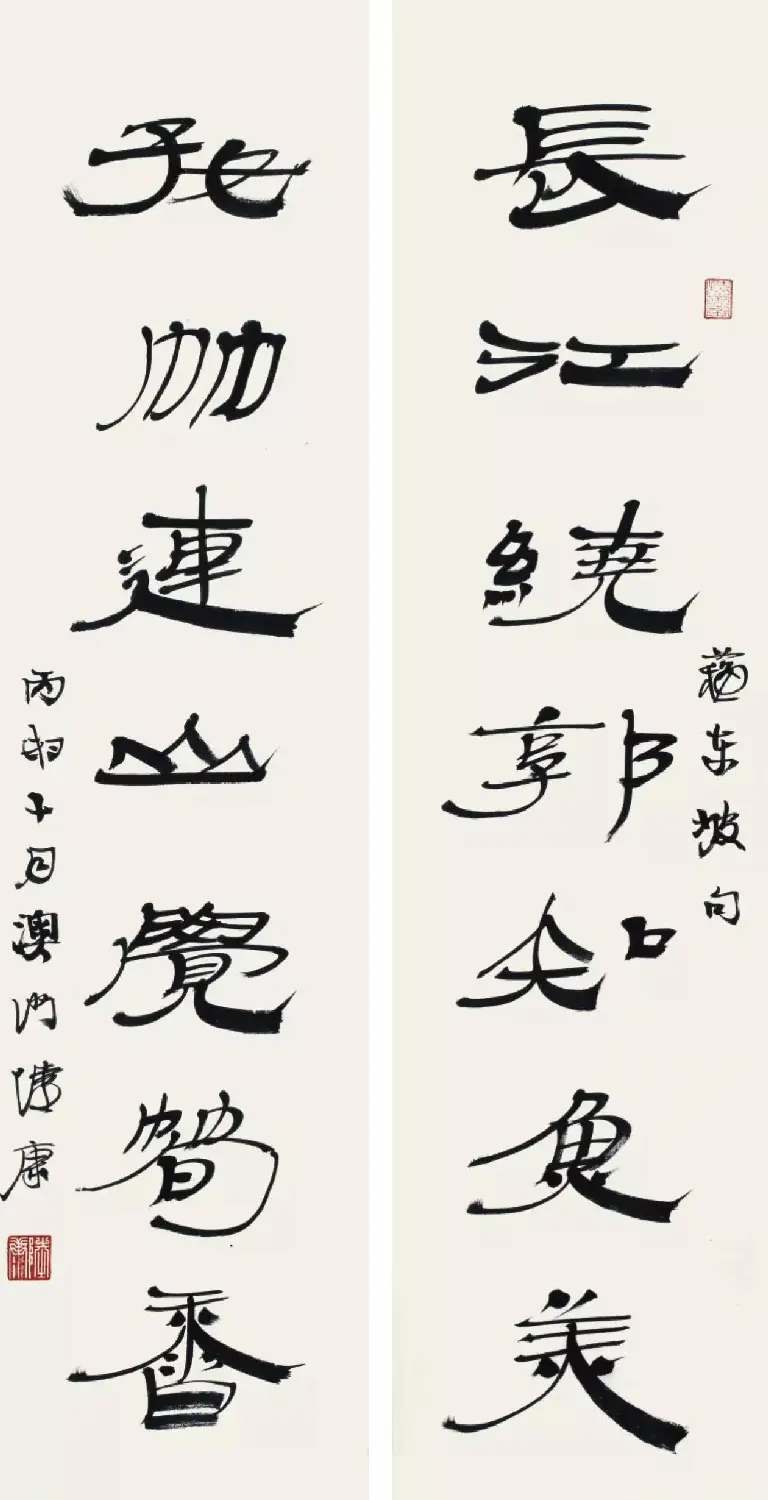 長江繞郭知魚美
蘇東坡句
好竹連山覺筍香
丙申十月澳門陸康
陸康